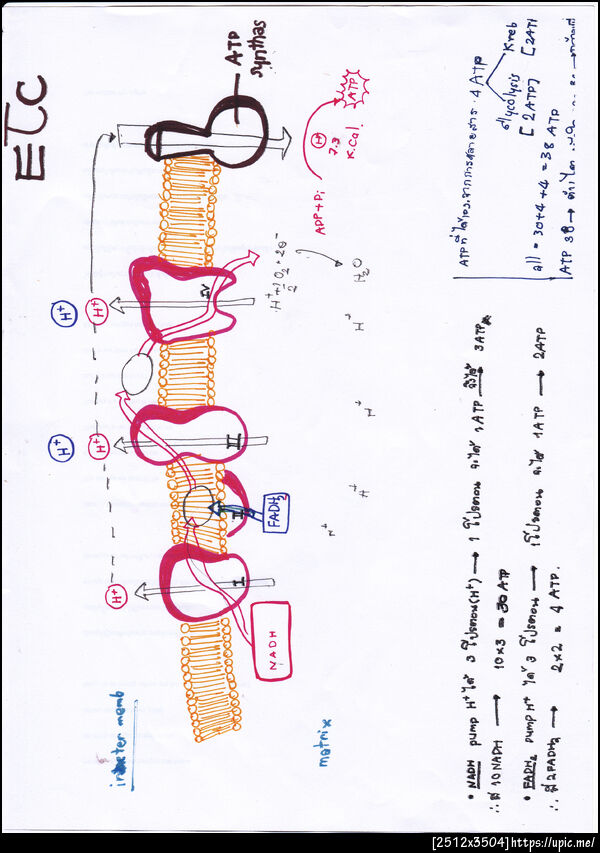 ETC
ATP
synthas
ATP
H⁺
7.3
K.Cal.
ADP+Pi
H⁺ + ½O₂ + 2e⁻
H₂O
IV
III
II
I
H⁺
H⁺
H⁺
H⁺
H⁺
H⁺
H⁺
H⁺
H⁺
FADH₂
NADH
inter memb
matrix
• NADH pump H⁺ ได้ 3 โปรตอน(H⁺) → 1 โปรตอน จะได้ 1ATP จึงได้ → 3ATP
∴ มี 10NADH → 10×3 = 30 ATP
• FADH₂ pump H⁺ ได้ 3 โปรตอน → 1โปรตอน จะได้ 1ATP → 2ATP
∴ มี 2FADH₂ → 2×2 = 4 ATP.
ATP ที่ได้ จากการสลายสาร 4 ATP
Glycolysis Kreb
[2ATP] [2ATP
all = 30+4+4 = 38 ATP
ATP 38 →
[2512x3504]https://upic.me/